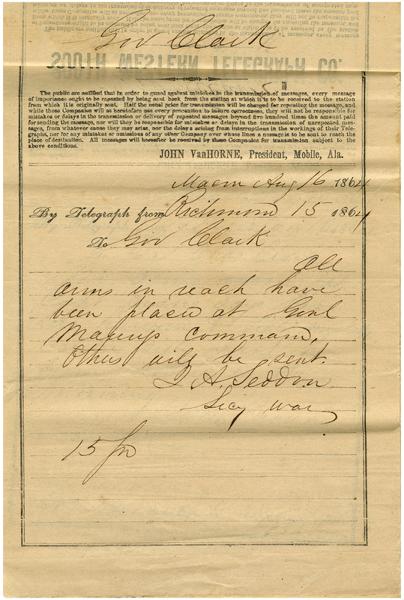 Gov Clark
SOUTH WESTERN TELEGRAPH CO.
The public are notified that in order to guard against mistakes in the transmission of messages, every message
of importance ought to be repeated by being sent back from the station at which it is to be received to the station
from which it is originally sent. Half the usual price for transmission will be charged for repeating the message, and
while these Companies will as heretofore use every precaution to insure correctness, they will not be responsible for
mistakes or delays in the transmission or delivery of repeated messages beyond five hundred times the amount paid
for sending the message, nor will they be responsible for mistakes or delays in the transmission of unrepeated mes-
sages, from whatever cause they may arise, nor for delays arising from interruptions in the workings of their Tele-
graphs, nor for any mistakes or omissions of any other Company over whose lines a message is to be sent to reach the
place of destination. All messages will hereafter be received by these Companies for transmission subject to the
above conditions.
JOHN VanHORNE, President, Mobile, Ala.
Macon Aug 16 1864
By Telegraph from Richmond 15 1864
To Gov Clark
All
arms in reach have
been placed at Genl
Maurys command,
Others will be sent.
J A Seddon
Secy war
15